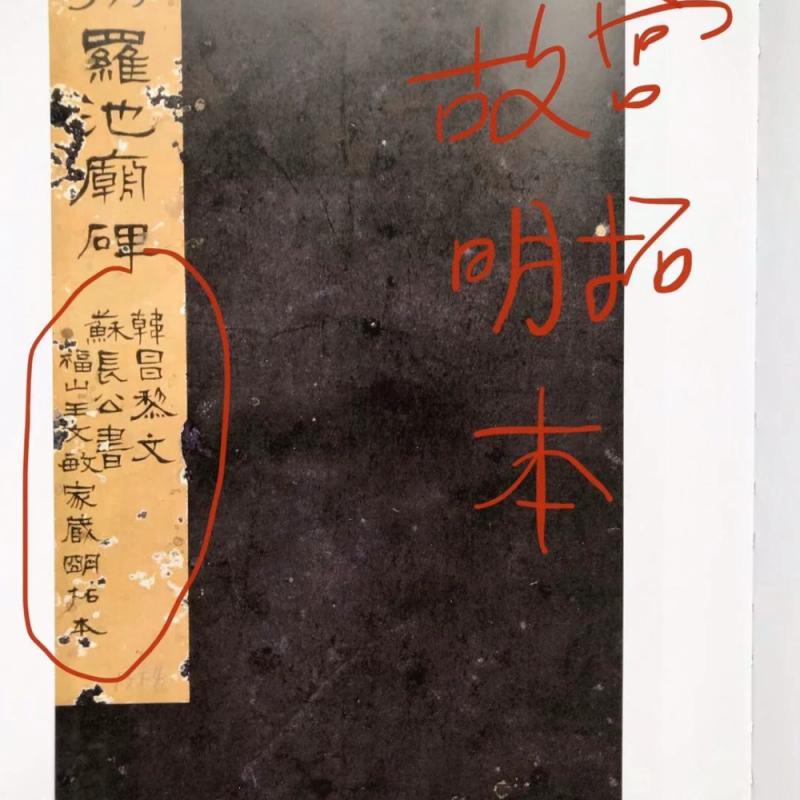 羅池廟碑
韓昌黎文
蘇長公書
福山王文敏家藏朙拓本
故宫
明拓
本